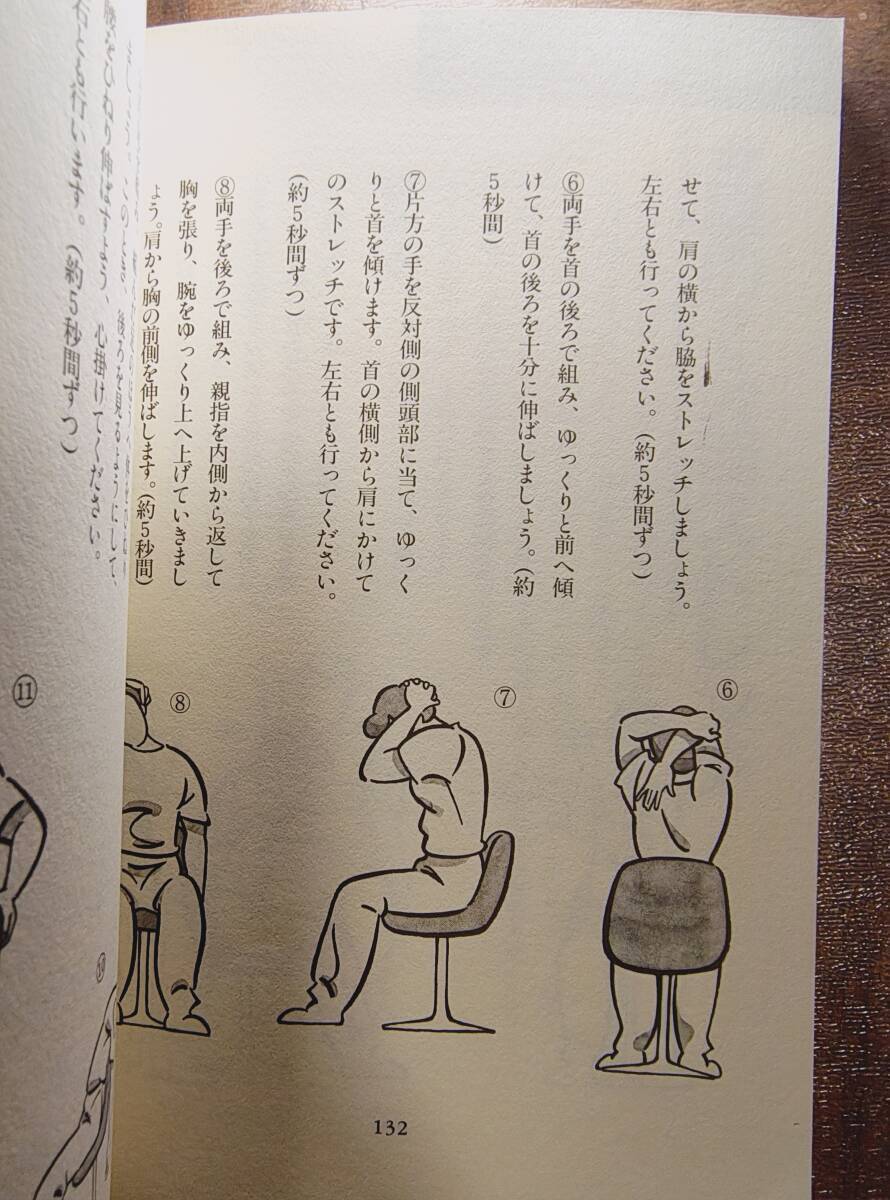 せて、肩の横から脇をストレッチしましょう。
左右とも行ってください。(約5秒間ずつ)
⑥両手を首の後ろで組み、ゆっくりと前へ傾
けて、首の後ろを十分に伸ばしましょう。(約
5秒間)
⑦片方の手を反対側の側頭部に当て、ゆっく
りと首を傾けます。首の横側から肩にかけて
のストレッチです。左右とも行ってください。
(約5秒間ずつ)
⑧両手を後ろで組み、親指を内側から返して
胸を張り、腕をゆっくり上へ上げていきまし
ょう。肩から胸の前側を伸ばします。(約5秒間)
⑥
⑦
⑧
132
ましょう。このとき、後ろを見るようにして、
腰をひねり伸ばすよう、心掛けてください。
右とも行います。(約5秒間ずつ)
⑪
⑩